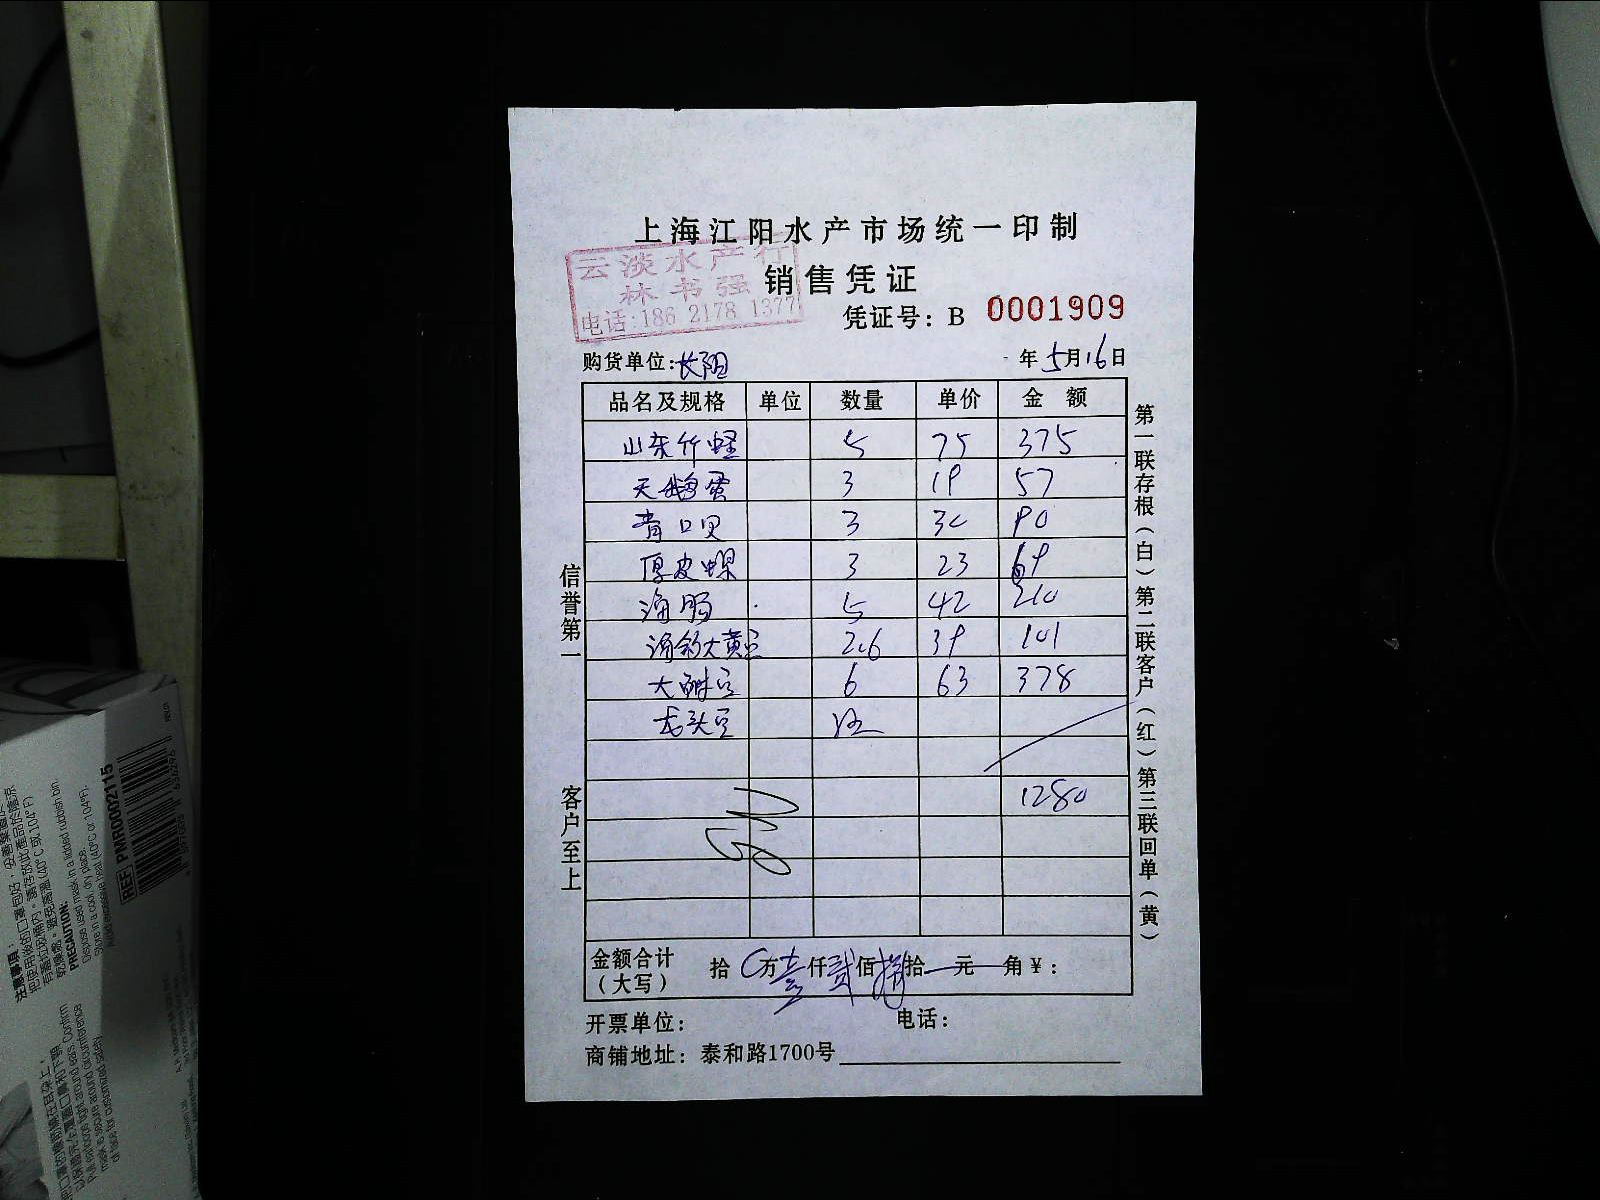 上海江阳水产市场统一印制
云淡水产行
林书强
电话:186 2178 1377
销售凭证
凭证号: B 0001909
购货单位:长阳 年5月16日
品名及规格 单位 数量 单价 金额
山东竹蛏 5 75 375
天鹅蛋 3 19 57
青口贝 3 30 90
厚皮螺 3 23 69
海肠 5 42 210
大黄 2.6 39 101
大 6 63 378
龙头
1280
金额合计
(大写) 拾 万壹仟贰佰捌拾 元 角¥:
开票单位: 电话:
商铺地址: 泰和路1700号
信誉第一
客户至上
第一联存根(白)第二联客户(红)第三联回单(黄)
REF PMR0002115
PRECAUTION:
Dispose used mask in a lidded rubbish bin.
Store in a cool dry place.